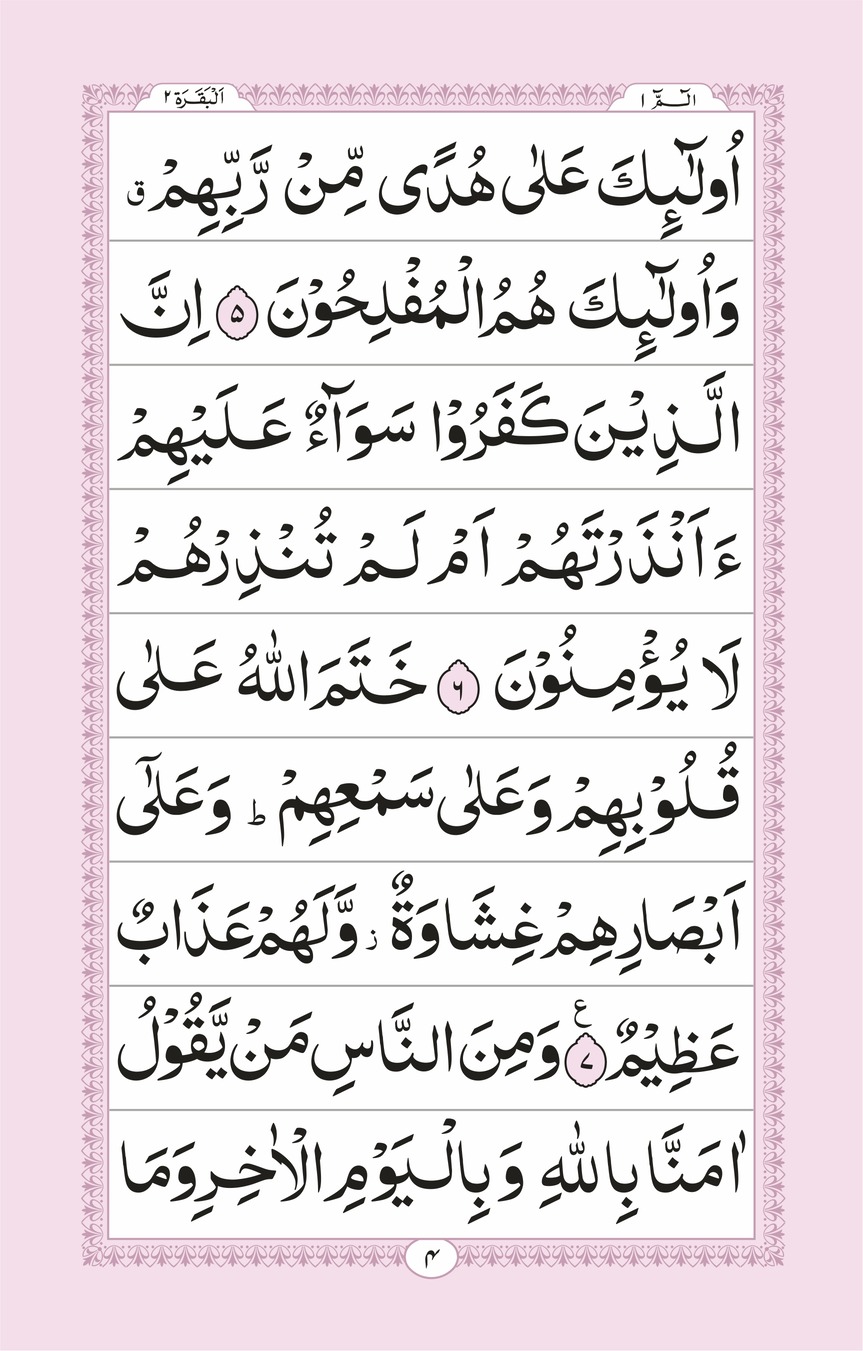 الٓـمّٓ ١
اَلْبَقَرَة ٢
اُولٰٓئِكَ عَلٰى هُدًى مِّنْ رَّبِّهِمْ ق
وَاُولٰٓئِكَ هُمُ الْمُفْلِحُوْنَ ۵ اِنَّ
الَّذِيْنَ كَفَرُوْا سَوَآءٌ عَلَيْهِمْ
ءَاَنْذَرْتَهُمْ اَمْ لَمْ تُنْذِرْهُمْ
لَا يُؤْمِنُوْنَ ۶ خَتَمَ اللّٰهُ عَلٰى
قُلُوْبِهِمْ وَعَلٰى سَمْعِهِمْ ط وَعَلٰٓى
اَبْصَارِهِمْ غِشَاوَةٌ ز وَّلَهُمْ عَذَابٌ
عَظِيْمٌ ۷ ع وَمِنَ النَّاسِ مَنْ يَّقُوْلُ
اٰمَنَّا بِاللّٰهِ وَبِالْيَوْمِ الْاٰخِرِ وَمَا
۴